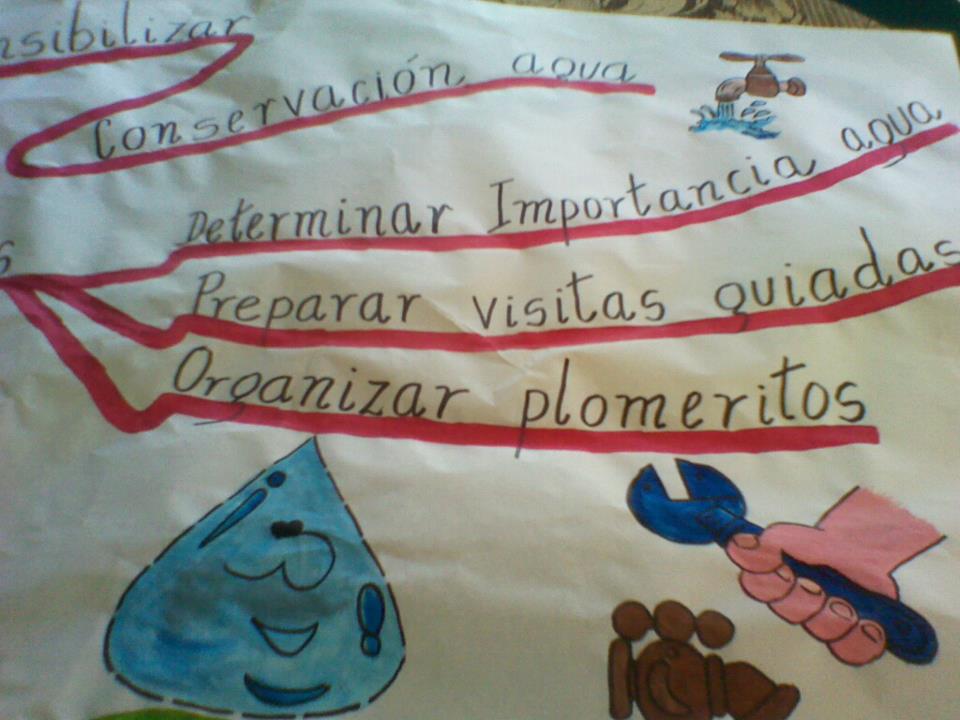 nsibilizar
Conservación agua
Determinar Importancia agua
s
Preparar visitas guiadas
Organizar plomeritos